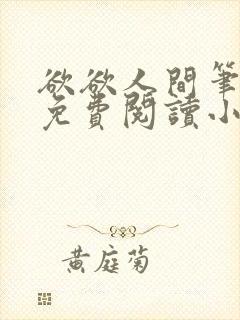 欲欲人間筆
免費閱讀小
黃庭菊